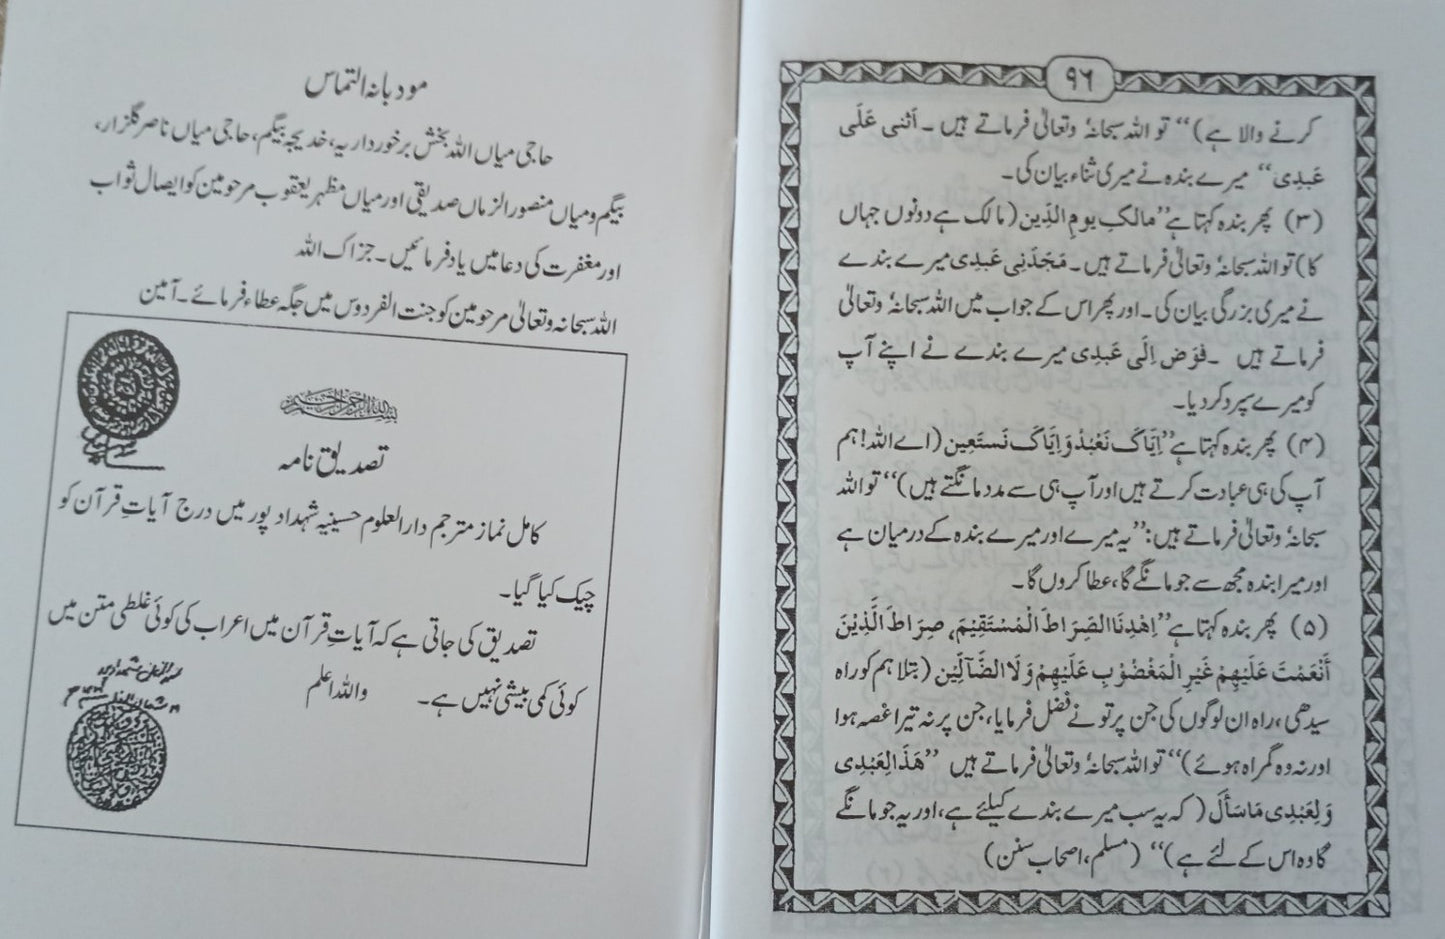 ۹۶
کرنے والا ہے)“ تو اللہ سبحانہٗ وتعالیٰ فرماتے ہیں ۔ اَثنی عَلَی
عَبدِی“ میرے بندہ نے میری ثناء بیان کی۔
(۳) پھر بندہ کہتا ہے”مالکِ یومِ الدِّین (مالک ہے دونوں جہاں
کا) تو اللہ سبحانہٗ وتعالیٰ فرماتے ہیں۔ مَجَدَنِی عَبدِی میرے بندے
نے میری بزرگی بیان کی۔ اور پھر اس کے جواب میں اللہ سبحانہٗ وتعالیٰ
فرماتے ہیں ۔ فَوَّضَ اِلَی عَبدِی میرے بندے نے اپنے آپ
کو میرے سپرد کر دیا۔
(۴) پھر بندہ کہتا ہے”اِیَّاکَ نَعْبُدُ وَ اِیَّاکَ نَستَعِین (اے اللہ! ہم
آپ کی ہی عبادت کرتے ہیں اور آپ ہی سے مدد مانگتے ہیں)“ تو اللہ
سبحانہٗ وتعالیٰ فرماتے ہیں:”یہ میرے اور میرے بندہ کے درمیان ہے
اور میرا بندہ مجھ سے جو مانگے گا، عطا کروں گا۔
(۵) پھر بندہ کہتا ہے”اِهْدِنَا الصِّرَاطَ الْمُسْتَقِيْمَ، صِرَاطَ الَّذِيْنَ
أَنْعَمْتَ عَلَيْهِمْ غَيْرِ الْمَغْضُوْبِ عَلَيْهِمْ وَلَا الضَّآلِّيْن (بتلا ہم کو راہ
سیدھی، راہ ان لوگوں کی جن پر تو نے فضل فرمایا، جن پر نہ تیرا غصہ ہوا
اور نہ وہ گمراہ ہوئے)“ تو اللہ سبحانہٗ وتعالیٰ فرماتے ہیں ”هٰذَا لِعَبْدِی
وَ لِعَبْدِی مَاسَأَلَ (کہ یہ سب میرے بندے کیلئے ہے، اور یہ جو مانگے
گا وہ اس کے لئے ہے)“ (مسلم، اصحاب سنن)
مودبانہ التماس
حاجی میاں اللہ بخش برخورداریہ، خدیجہ بیگم، حاجی میاں ناصر گلزار،
بیگم و میاں منصور الزماں صدیقی اور میاں مظہر یعقوب مرحومین کو ایصال ثواب
اور مغفرت کی دعا میں یاد فرمائیں۔ جزاک اللہ
اللہ سبحانہ وتعالیٰ مرحومین کو جنت الفردوس میں جگہ عطاء فرمائے۔ آمین
بسم اللہ الرحمن الرحیم
تصدیق نامہ
کامل نماز مترجم دارالعلوم حسینیہ شہداد پور میں درج آیاتِ قرآن کو
چیک کیا گیا۔
تصدیق کی جاتی ہے کہ آیاتِ قرآن میں اعراب کی کوئی غلطی متن میں
کوئی کمی بیشی نہیں ہے۔ واللہ اعلم